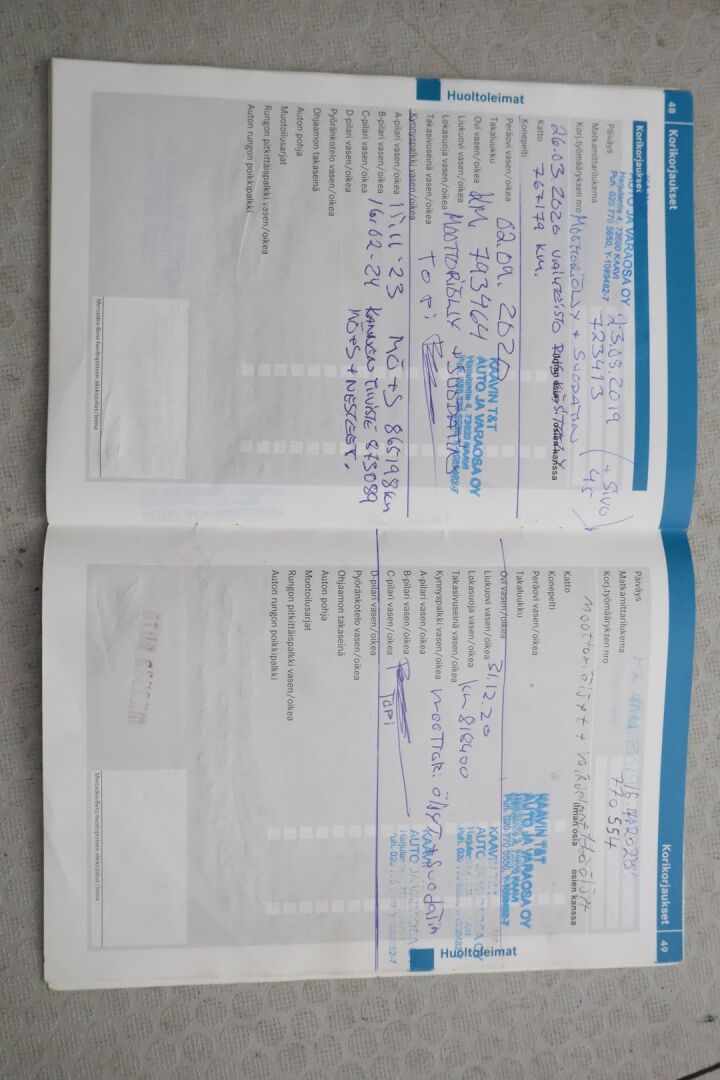 48 Korikorjaukset
Korikorjaukset
AUTO JA VARAOSA OY
Harjulantie 4, 73600 KAAVI
Puh. 020 770 5650, Y-1089482-7
Päiväys 23.08.2019
Matkamittarilukema 723413 (+ SIVU 45)
Korj.työmääryksen nro MOOTTORIÖLJY + SUODATIN
26.03.2020
Katto 767179 KM.
osien kanssa
Konepelti
Peräovi vasen/oikea 02.09.2020
Takaluukku
KAAVIN T&T
AUTO JA VARAOSA OY
Harjulantie 4, 73600 KAAVI
Ovi vasen/oikea KM. 793464
Liukuovi vasen/oikea MOOTTORIÖLJY + SUODATIN
Lokasuoja vasen/oikea
Takasivuseinä vasen/oikea TOPI
Kynnyspalkki vasen/oikea
A-pilari vasen/oikea 15.11-23 MÖ+S 865198km
B-pilari vasen/oikea
C-pilari vasen/oikea 16.02-24 873089
D-pilari vasen/oikea MÖ+S + NESTEET.
Pyöränkotelo vasen/oikea
Ohjaamon takaseinä
Auton pohja
Muotoilusarjat
Rungon pitkittäispalkki vasen/oikea
Auton rungon poikkipalkki
Mercedes-Benz-huoltopisteen allekirjoitus/leima
Huoltoleimat
Korikorjaukset 49
Päiväys
Matkamittarilukema 770 554
Korj.työmääräyksen nro
Moottoriöljyt +
ilman osia osien kanssa
Katto
Konepelti
Peräovi vasen/oikea
Takaluukku
KAAVIN T&T
AUTO JA VARAOSA OY
Ovi vasen/oikea
Liukuovi vasen/oikea 31.12.20
Lokasuoja vasen/oikea km 818400
AUTO JA VARAOSA OY
Takasivuseinä vasen/oikea
Kynnyspalkki vasen/oikea moottori öljyt + Suodatin
A-pilari vasen/oikea
B-pilari vasen/oikea
C-pilari vasen/oikea TOPI
KAAVIN
AUTO JA VARAOSA OY
D-pilari vasen/oikea
Pyöränkotelo vasen/oikea
Ohjaamon takaseinä
Auton pohja
Muotoilusarjat
Rungon pitkittäispalkki vasen/oikea
Auton rungon poikkipalkki
Mercedes-Benz-huoltopisteen allekirjoitus/leima
Huoltoleimat